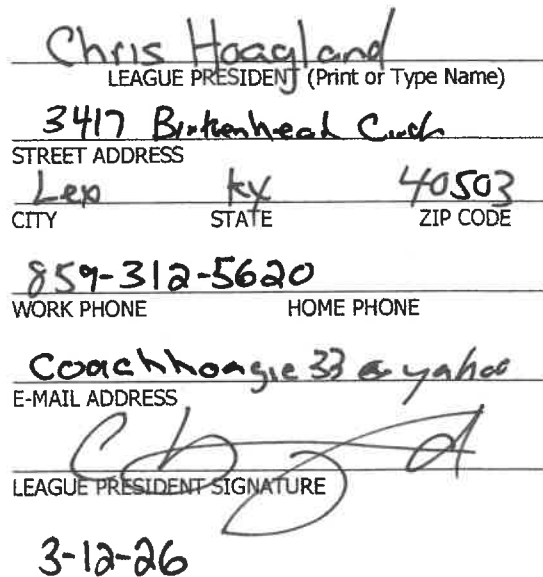 Chris Hoagland
LEAGUE PRESIDENT (Print or Type Name)
3417 Birkenhead
STREET ADDRESS
Lex ky 40503
CITY STATE ZIP CODE
859-312-5620
WORK PHONE HOME PHONE
Coachhoagie33@yahoo
E-MAIL ADDRESS
LEAGUE PRESIDENT SIGNATURE
3-12-26